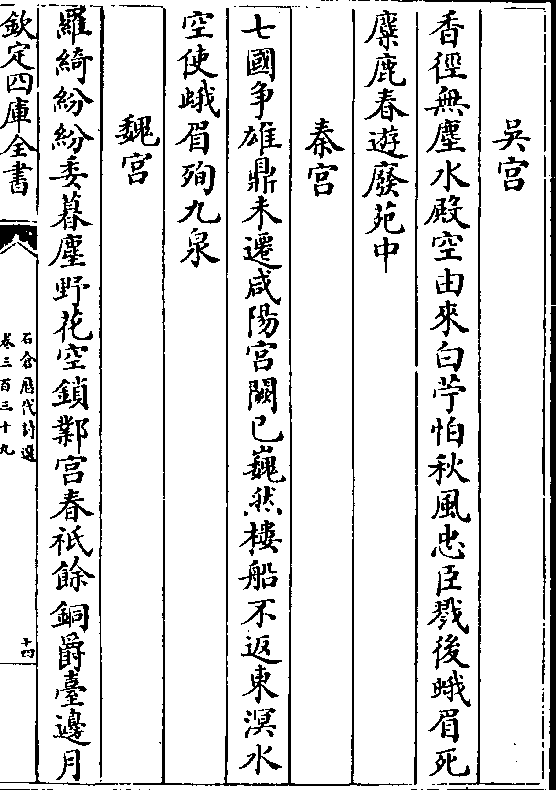 吳宮
香徑無塵水殿空由來白苧怕秋風忠臣戮後蛾眉死
麋鹿春遊廢苑中
秦宮
七國爭雄鼎未遷咸陽宮闕已巍然樓船不返東溟水
空使蛾眉殉九泉
魏宮
羅綺紛紛委暮塵野花空鎖鄴宮春祇餘銅爵臺邊月
欽定四庫全書
石倉歷代詩選
卷三百三十九
十四